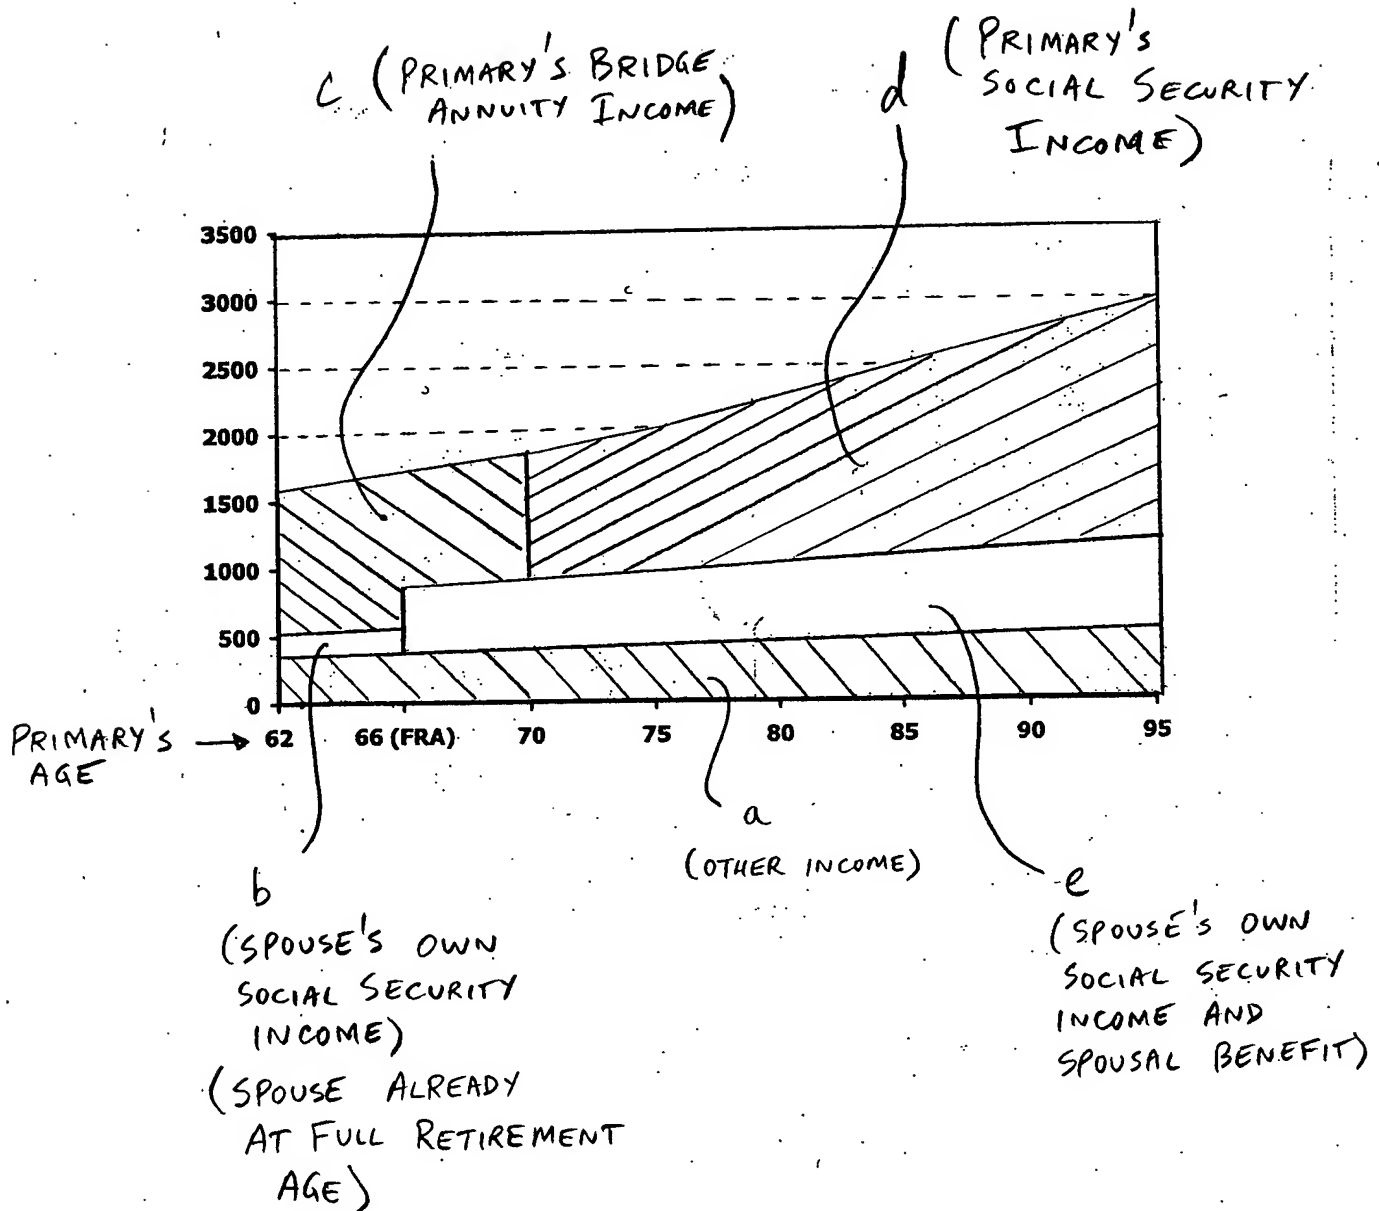 c (PRIMARY'S BRIDGE
ANNUITY INCOME)
d (PRIMARY'S
SOCIAL SECURITY
INCOME)
3500
3000
2500
2000
1500
1000
500
0
62 66 (FRA) 70 75 80 85 90 95
PRIMARY'S →
AGE
a
(OTHER INCOME)
b
(SPOUSE'S OWN
SOCIAL SECURITY
INCOME)
(SPOUSE ALREADY
AT FULL RETIREMENT
AGE)
e
(SPOUSE'S OWN
SOCIAL SECURITY
INCOME AND
SPOUSAL BENEFIT)